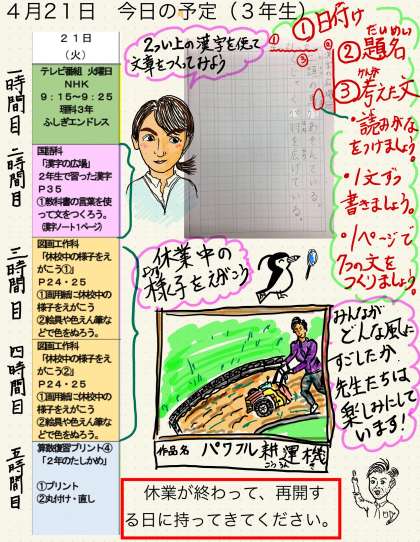 ４月２１日　今日の予定（３年生）
２１日
（火）
一時間目
テレビ番組　火曜日
NHK
９：１５〜９：２５
理科３年
ふしぎエンドレス
二時間目
国語科
「漢字の広場」
２年生で習った漢字
Ｐ３５
①教科書の言葉を使
って文をつくろう。
（漢字ノート1ページ）
三時間目
図画工作科
「休校中の様子をえ
がこう①」
Ｐ２４・２５
①画用紙に休校中の
様子をえがこう
②絵具や色えん筆な
どで色をぬろう。
四時間目
図画工作科
「休校中の様子をえ
がこう②」
Ｐ２４・２５
①画用紙に休校中の
様子をえがこう
②絵具や色えん筆な
どで色をぬろう。
五時間目
算数復習プリント④
「２年のたしかめ」
①プリント
②丸付け・直し
2つ以上の漢字を使って
文章をつくってみよう
①
②
③
①日付け
②題名
だいめい
③考えた文
・読みがな
をつけましょう
・1文ずつ
書きましょう。
・1ページで
7つの文を
つくりましょう。
休業中の
様子をえがこう
みんなが
どんな風に
すごしたか
先生たちは
楽しみにして
います！
作品名　パワフル耕運機
こううんき
休業が終わって、再開す
る日に持ってきてください。